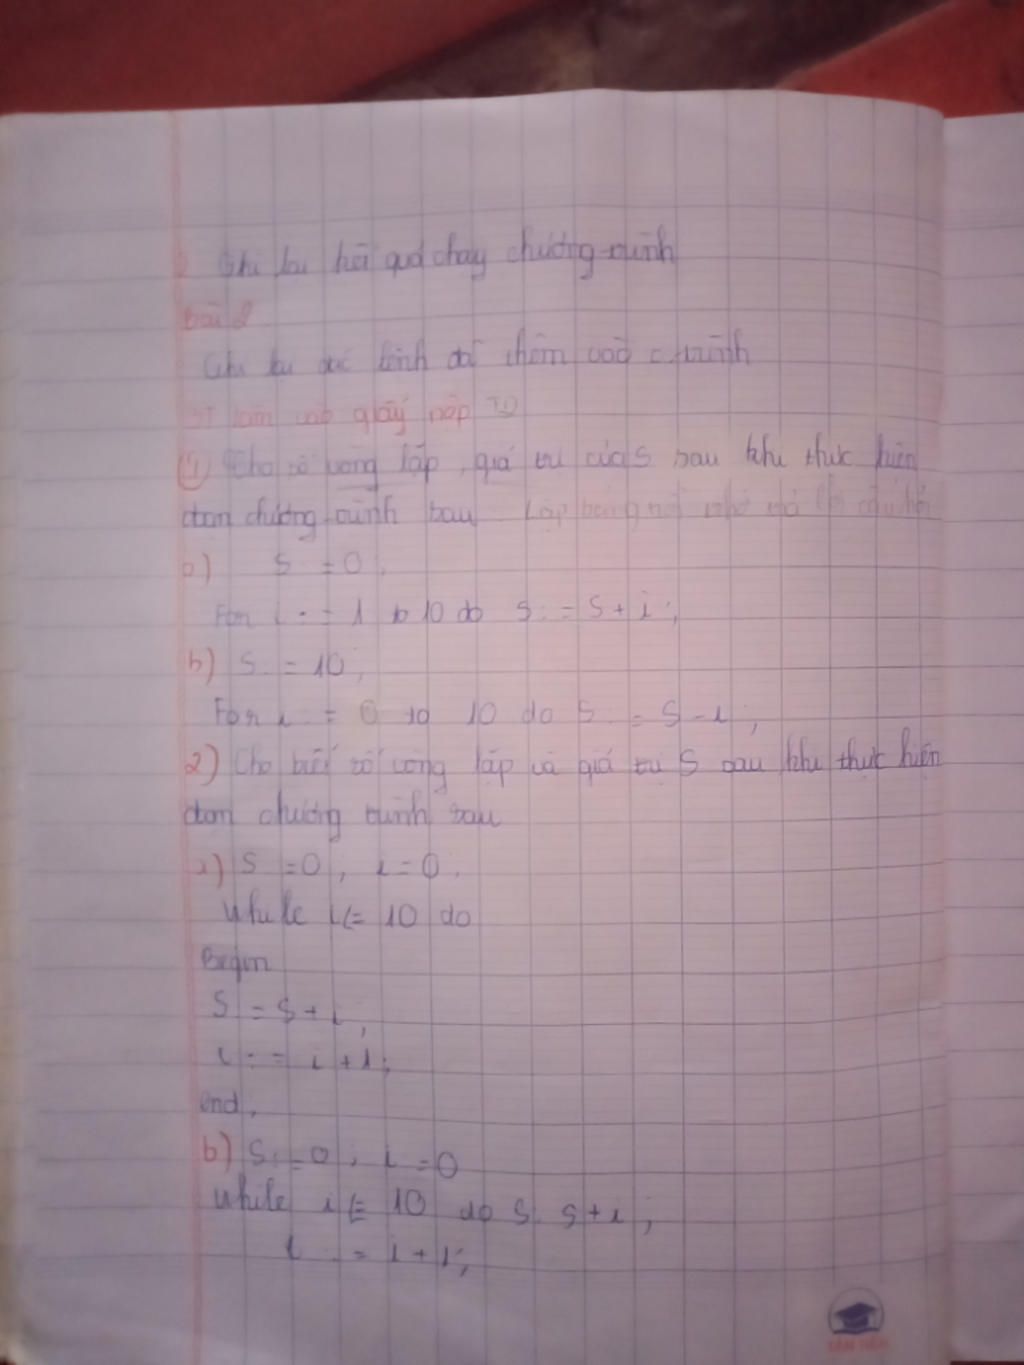 Ghi lại kết quả chạy chương trình
Bài 2
Ghi lại các lệnh đã thêm vào c.trình
BT làm vào giấy nộp
① Cho số vòng lặp, giá trị của S sau khi thực hiện
đoạn chương trình sau Lập bảng
a) S = 0
For i := 1 to 10 do S := S + i ;
b) S := 10 ;
For i := 0 to 10 do S := S - i ;
2) Cho biết số vòng lặp và giá trị S sau khi thực hiện
đoạn chương trình sau
a) S = 0 ; i = 0 .
While i <= 10 do
Begin
S = S + i ;
i := i + 1 ;
end ;
b) S := 0 ; i = 0
While i <= 10 do S S + i ;
i := i + 1 ;